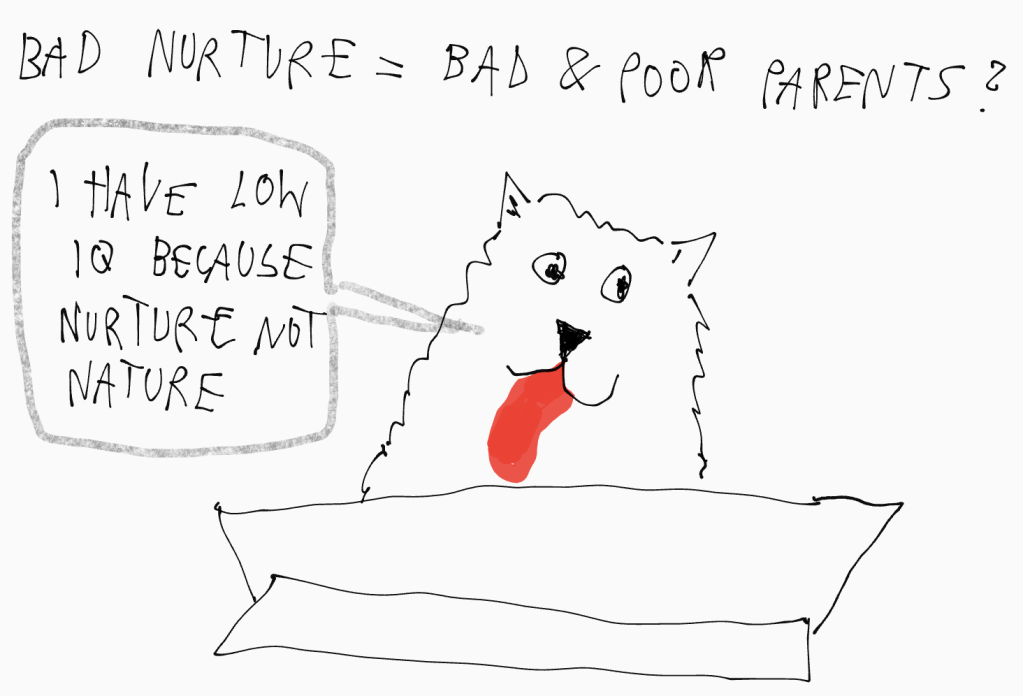 BAD NURTURE = BAD & POOR PARENTS?
I HAVE LOW
IQ BECAUSE
NURTURE NOT
NATURE